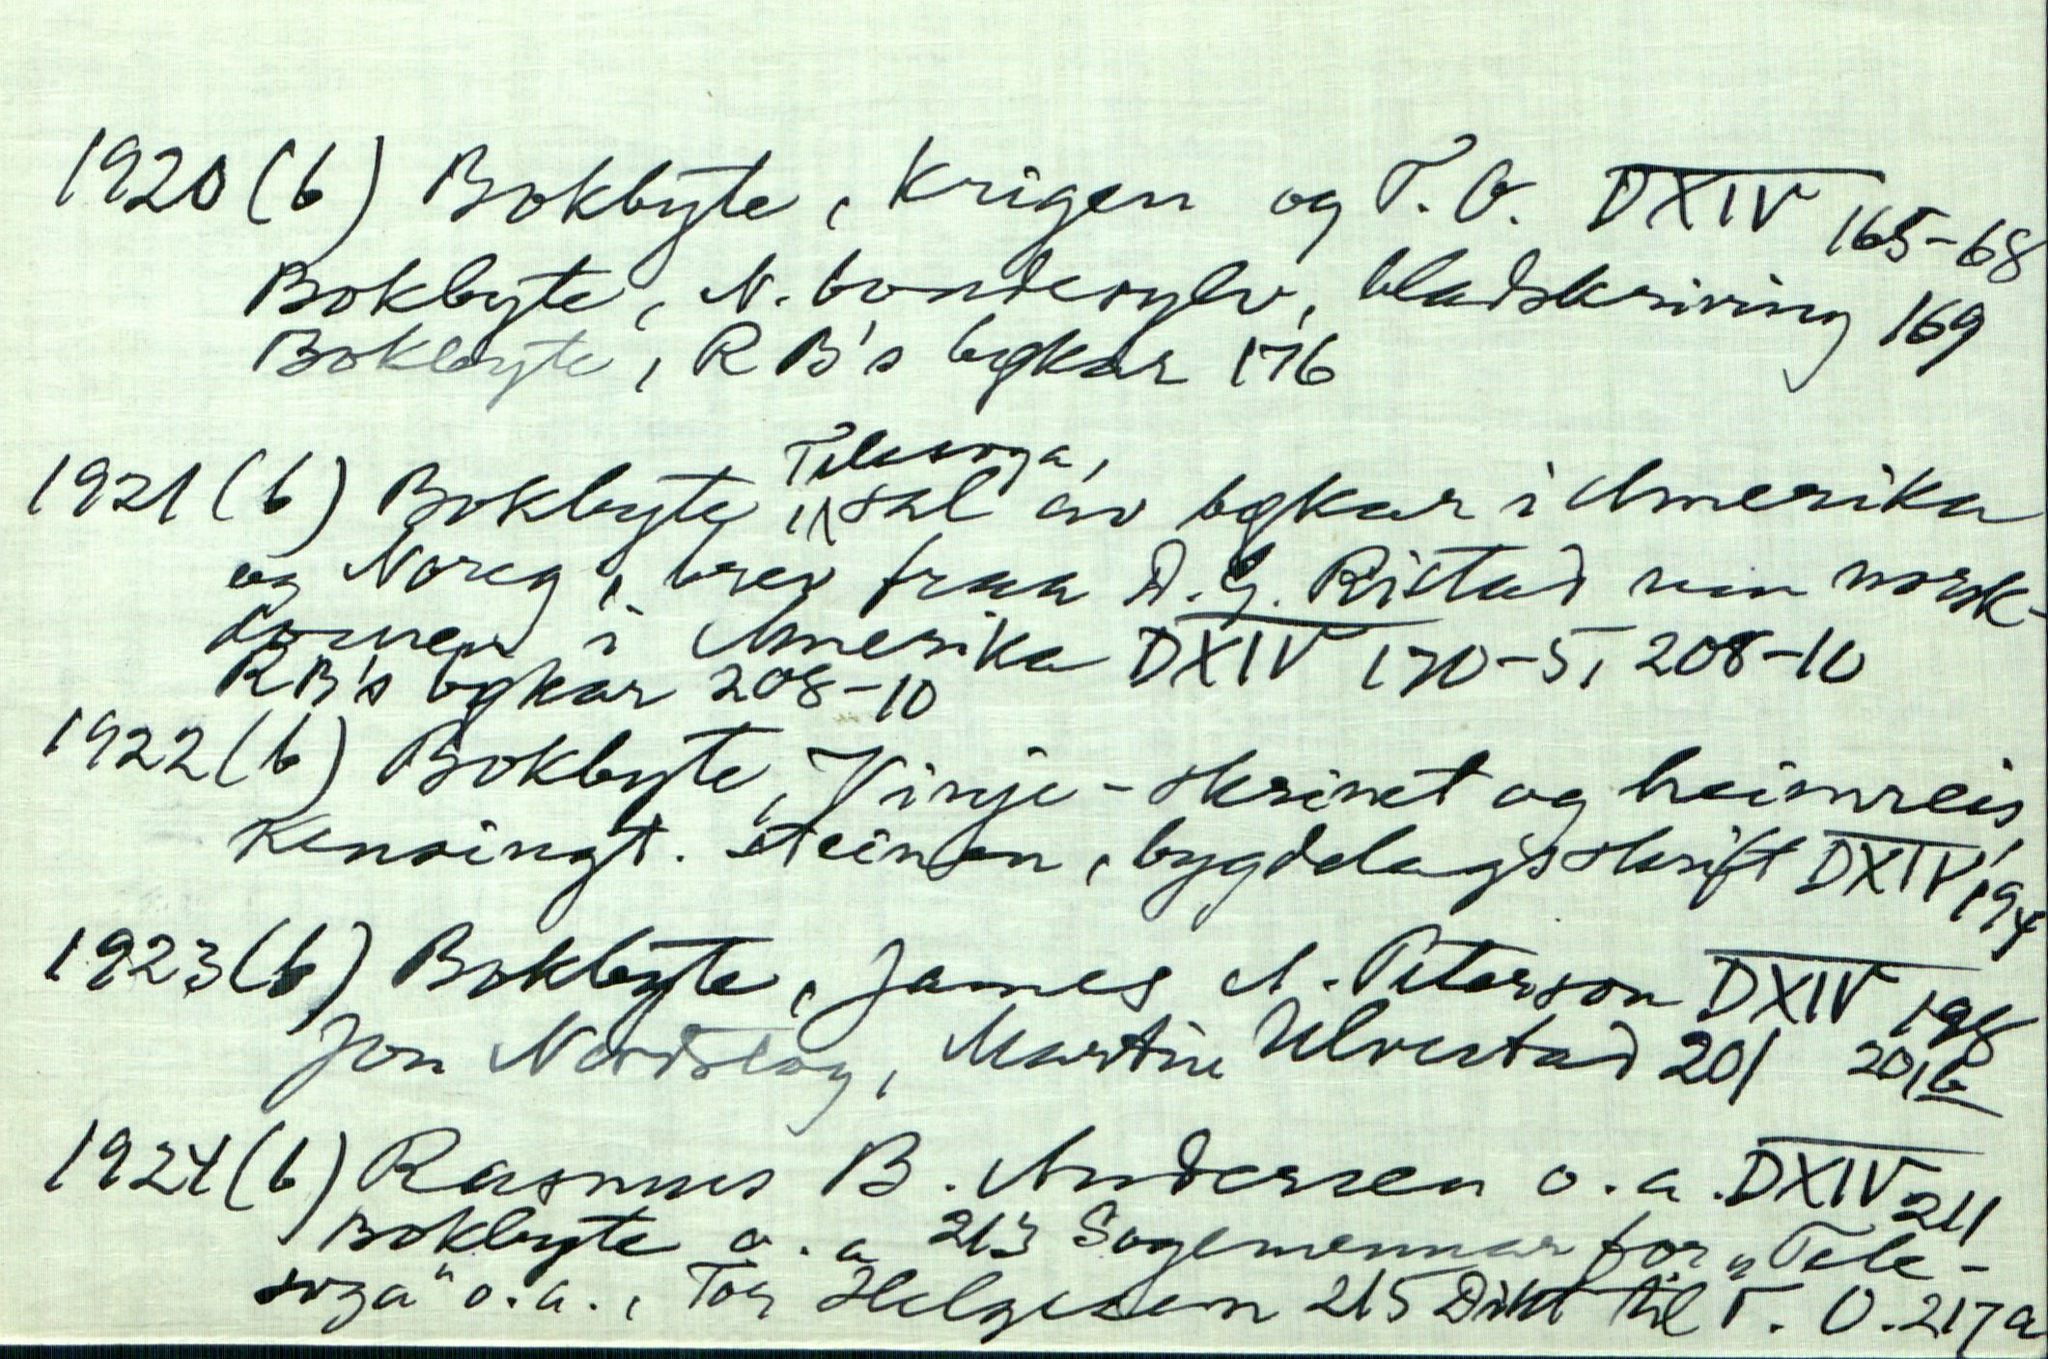 1920 (b) Bokbyte, Krigen og T. O. DXIV 165-68
Bokbyte, N. bondesylv, bladskriving 169
Bokbyte, RB's bøkar 176
Telesoga,
1921 (b) Bokbyte, sal av bøkar i Amerika
og Noreg, brev fraa D. G. Ristad um norsk-
domen i Amerika DXIV 170-5, 208-10
RB's bøkar 208-10
1922 (b) Bokbyte, Vinje-skrinet og heimreis,
Kensingt. steinen, bygdelagsskrift DXIV 194
1923 (b) Bokbyte, James A. Peterson DXIV 198
Jon Nordstog, Martin Ulvestad 201 201b
1924 (b) Rasmus B. Andersen o. a. DXIV 211
Bokbyte o. a 213 Sogemennar for „Tele-
soga" o. a., Tor Helgesen 215 Dikt til T. O. 217a